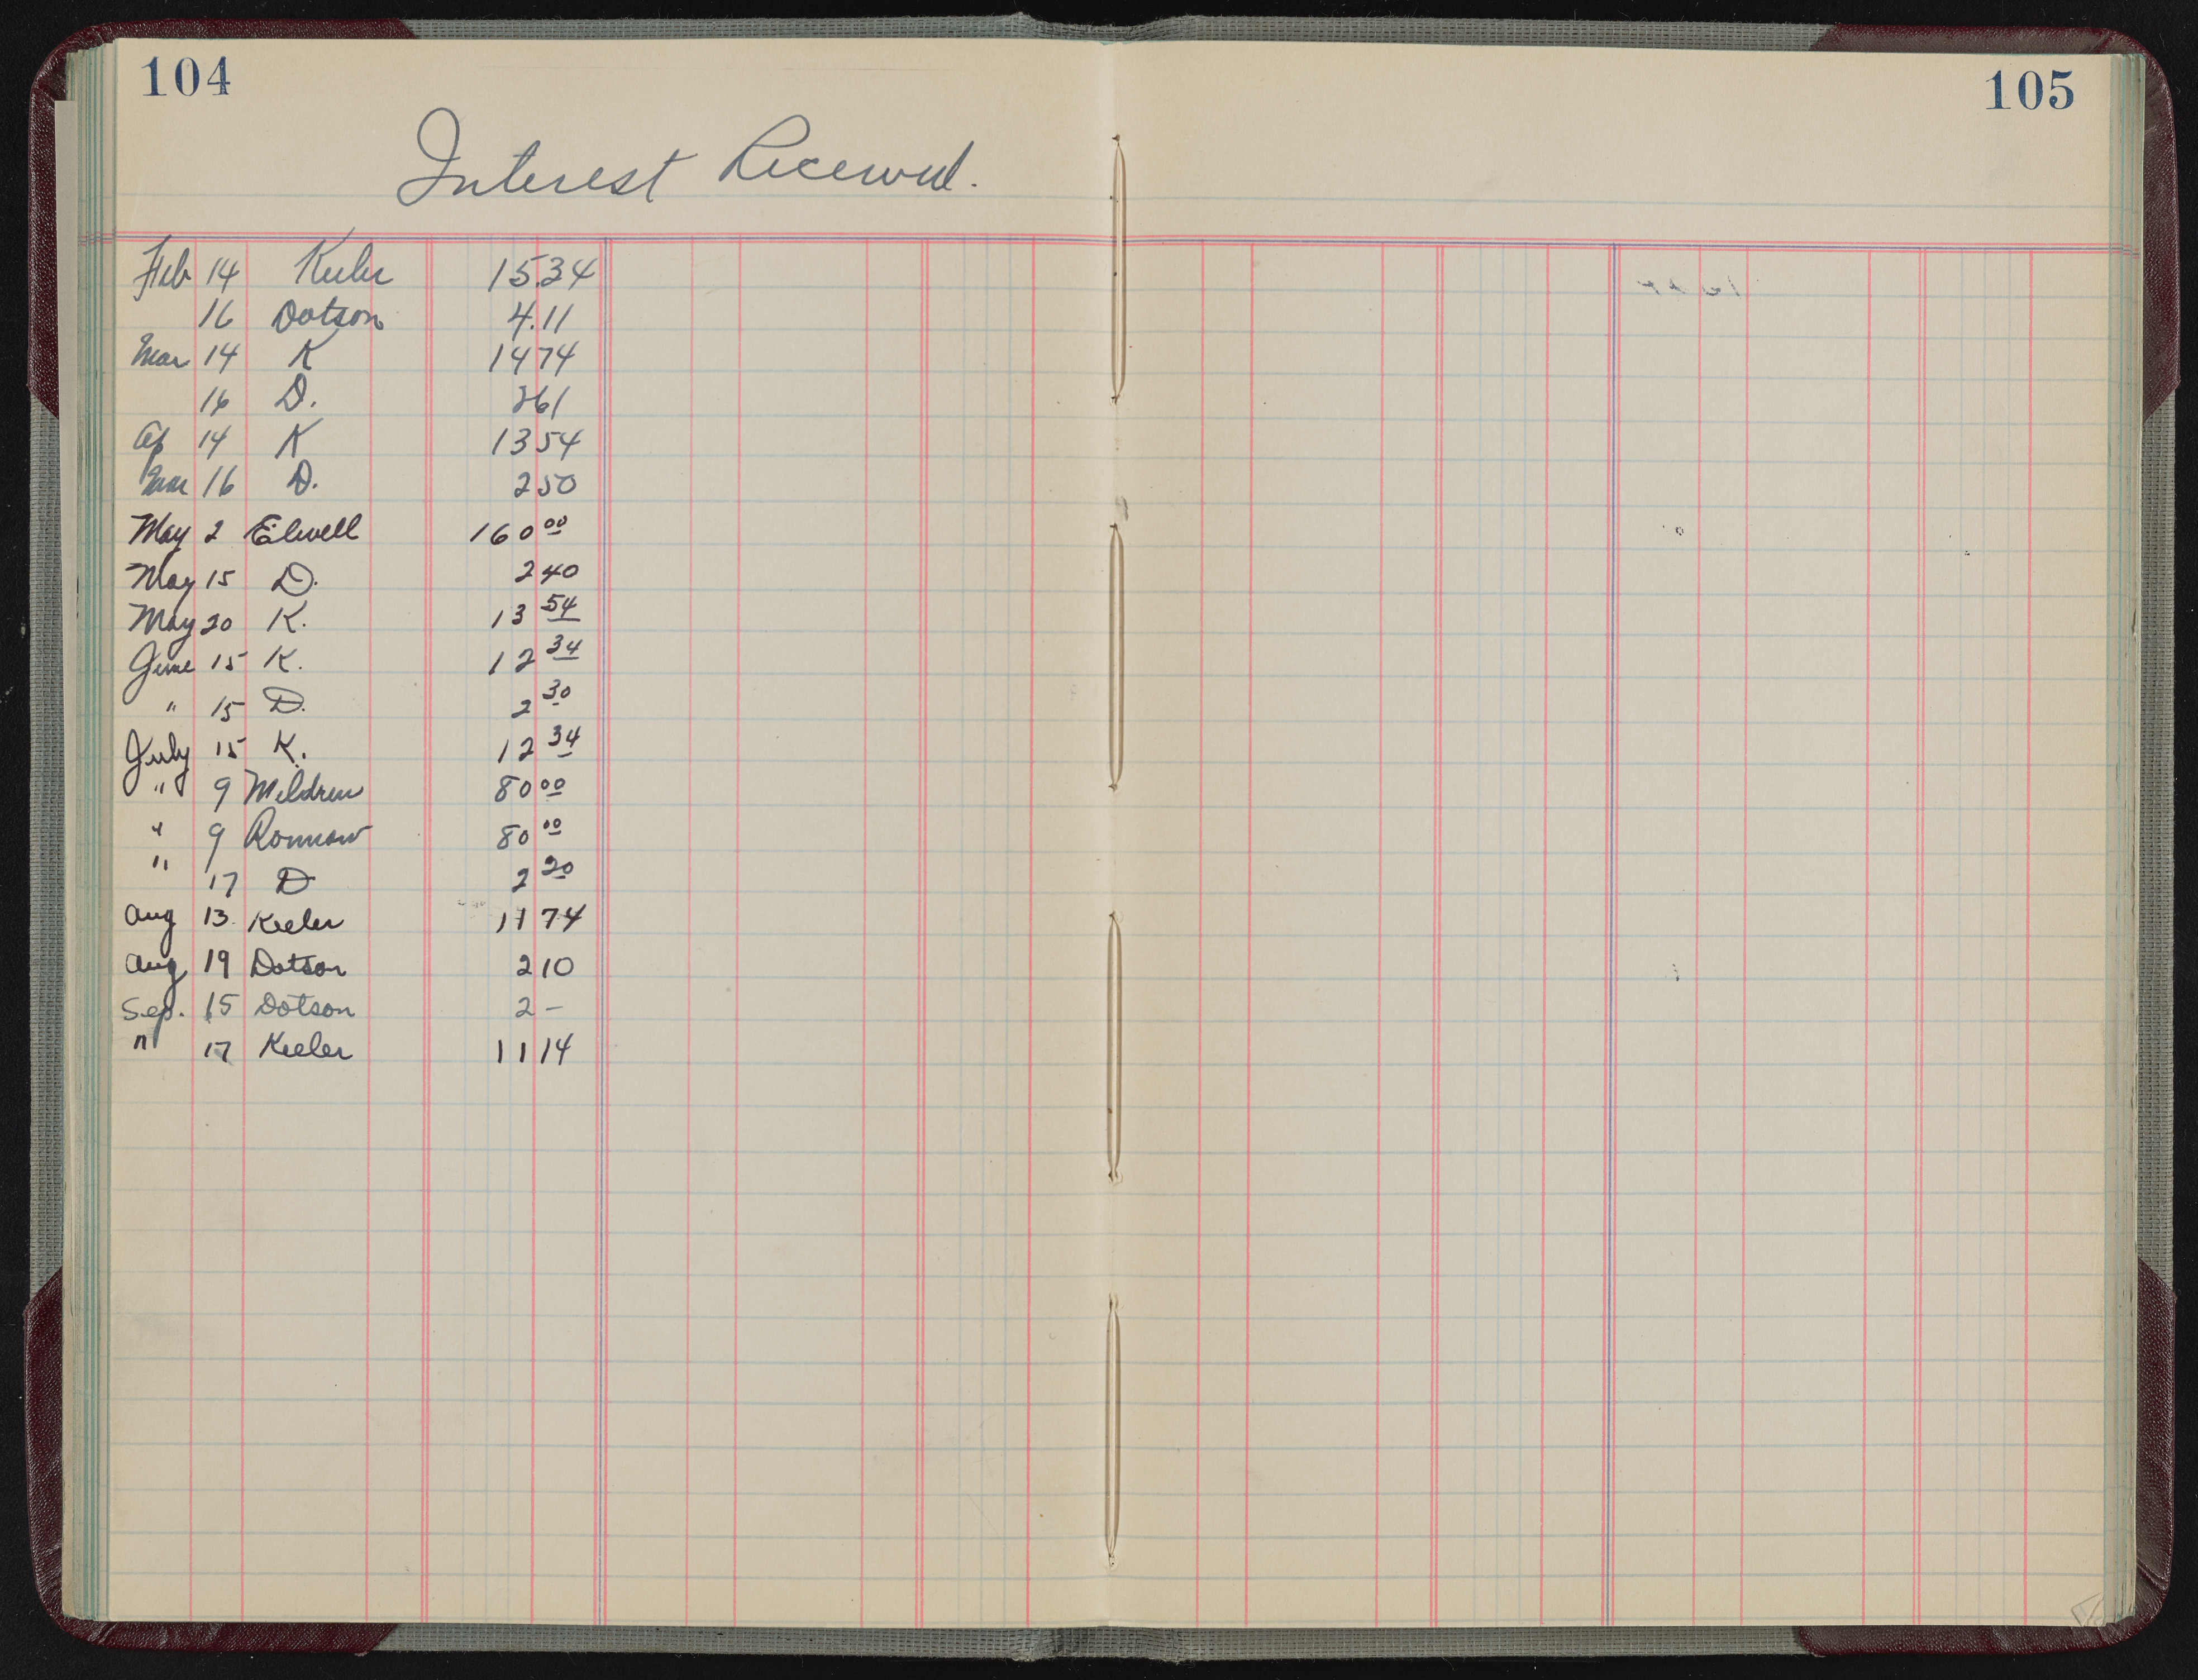 104
105
Interest Received.
Feb 14 Keeler 15.34
16 Dotson 4.11
Mar 14 K 14 74
16 D. 261
Ap 14 K 13 54
Mar 16 D. 2 50
May 2 Elwell 160 00
May 15 D. 2 40
May 20 K. 13 54
June 15 K. 12 34
" 15 D. 2 30
July 15 K. 12 34
" 9 Meldrum 80 00
" 9 Ronnow 80 00
" 17 D 2 20
Aug 13 Keeler 11 74
Aug 19 Dotson 2 10
Sep. 15 Dotson 2 –
" 17 Keeler 11 14